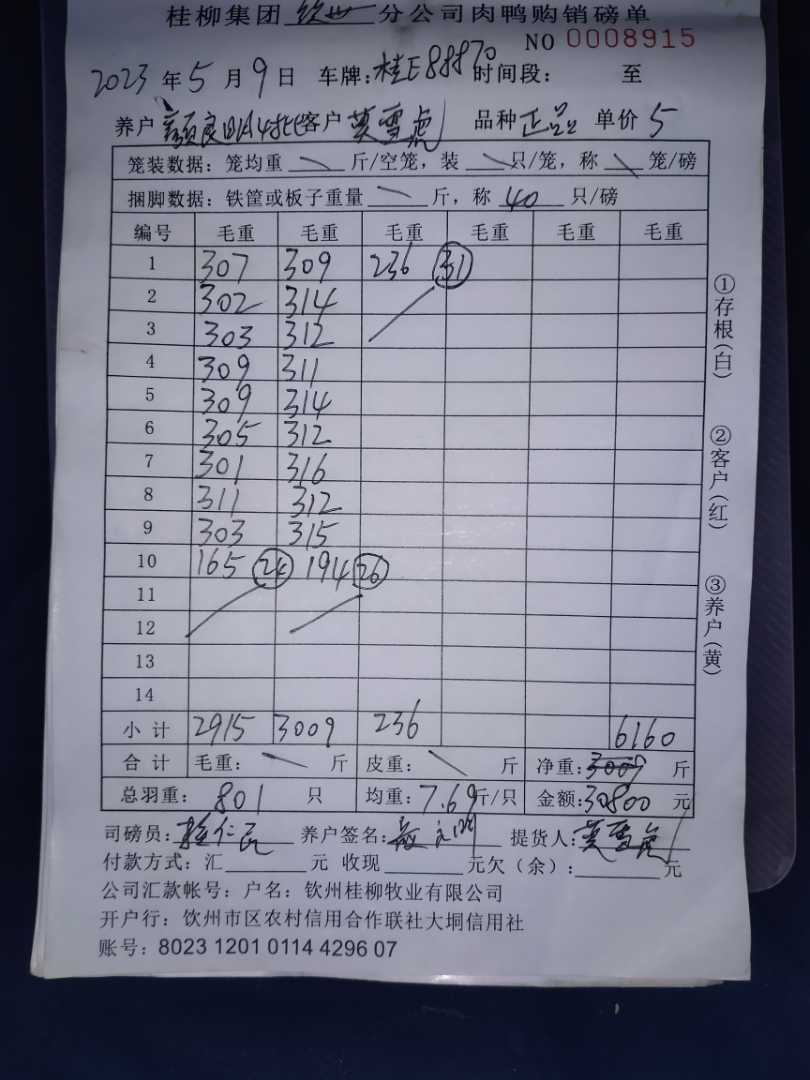 桂柳集团 钦州 分公司肉鸭购销磅单
NO 0008915
2023 年 5 月 9 日 车牌：桂E88870 时间段： 至
养户 颜良明4批 客户 莫雪虎 品种 正品 单价 5
笼装数据：笼均重 斤/空笼，装 只/笼，称 笼/磅
捆脚数据：铁筐或板子重量 斤，称 40 只/磅
编号 毛重 毛重 毛重 毛重 毛重 毛重
1 307 309 236 31
2 302 314
3 303 312
4 309 311
5 309 314
6 305 312
7 301 316
8 311 312
9 303 315
10 165 24 194 26
11
12
13
14
小计 2915 3009 236 6160
合计 毛重： 斤 皮重： 斤 净重：3009 斤
总羽重： 801 只 均重：7.69 斤/只 金额：30800 元
司磅员： 养户签名： 提货人：莫雪虎
付款方式：汇 元 收现 元欠（余）： 元
公司汇款帐号：户名：钦州桂柳牧业有限公司
开户行：钦州市区农村信用合作联社大垌信用社
账号：8023 1201 0114 4296 07
①存根（白）
②客户（红）
③养户（黄）